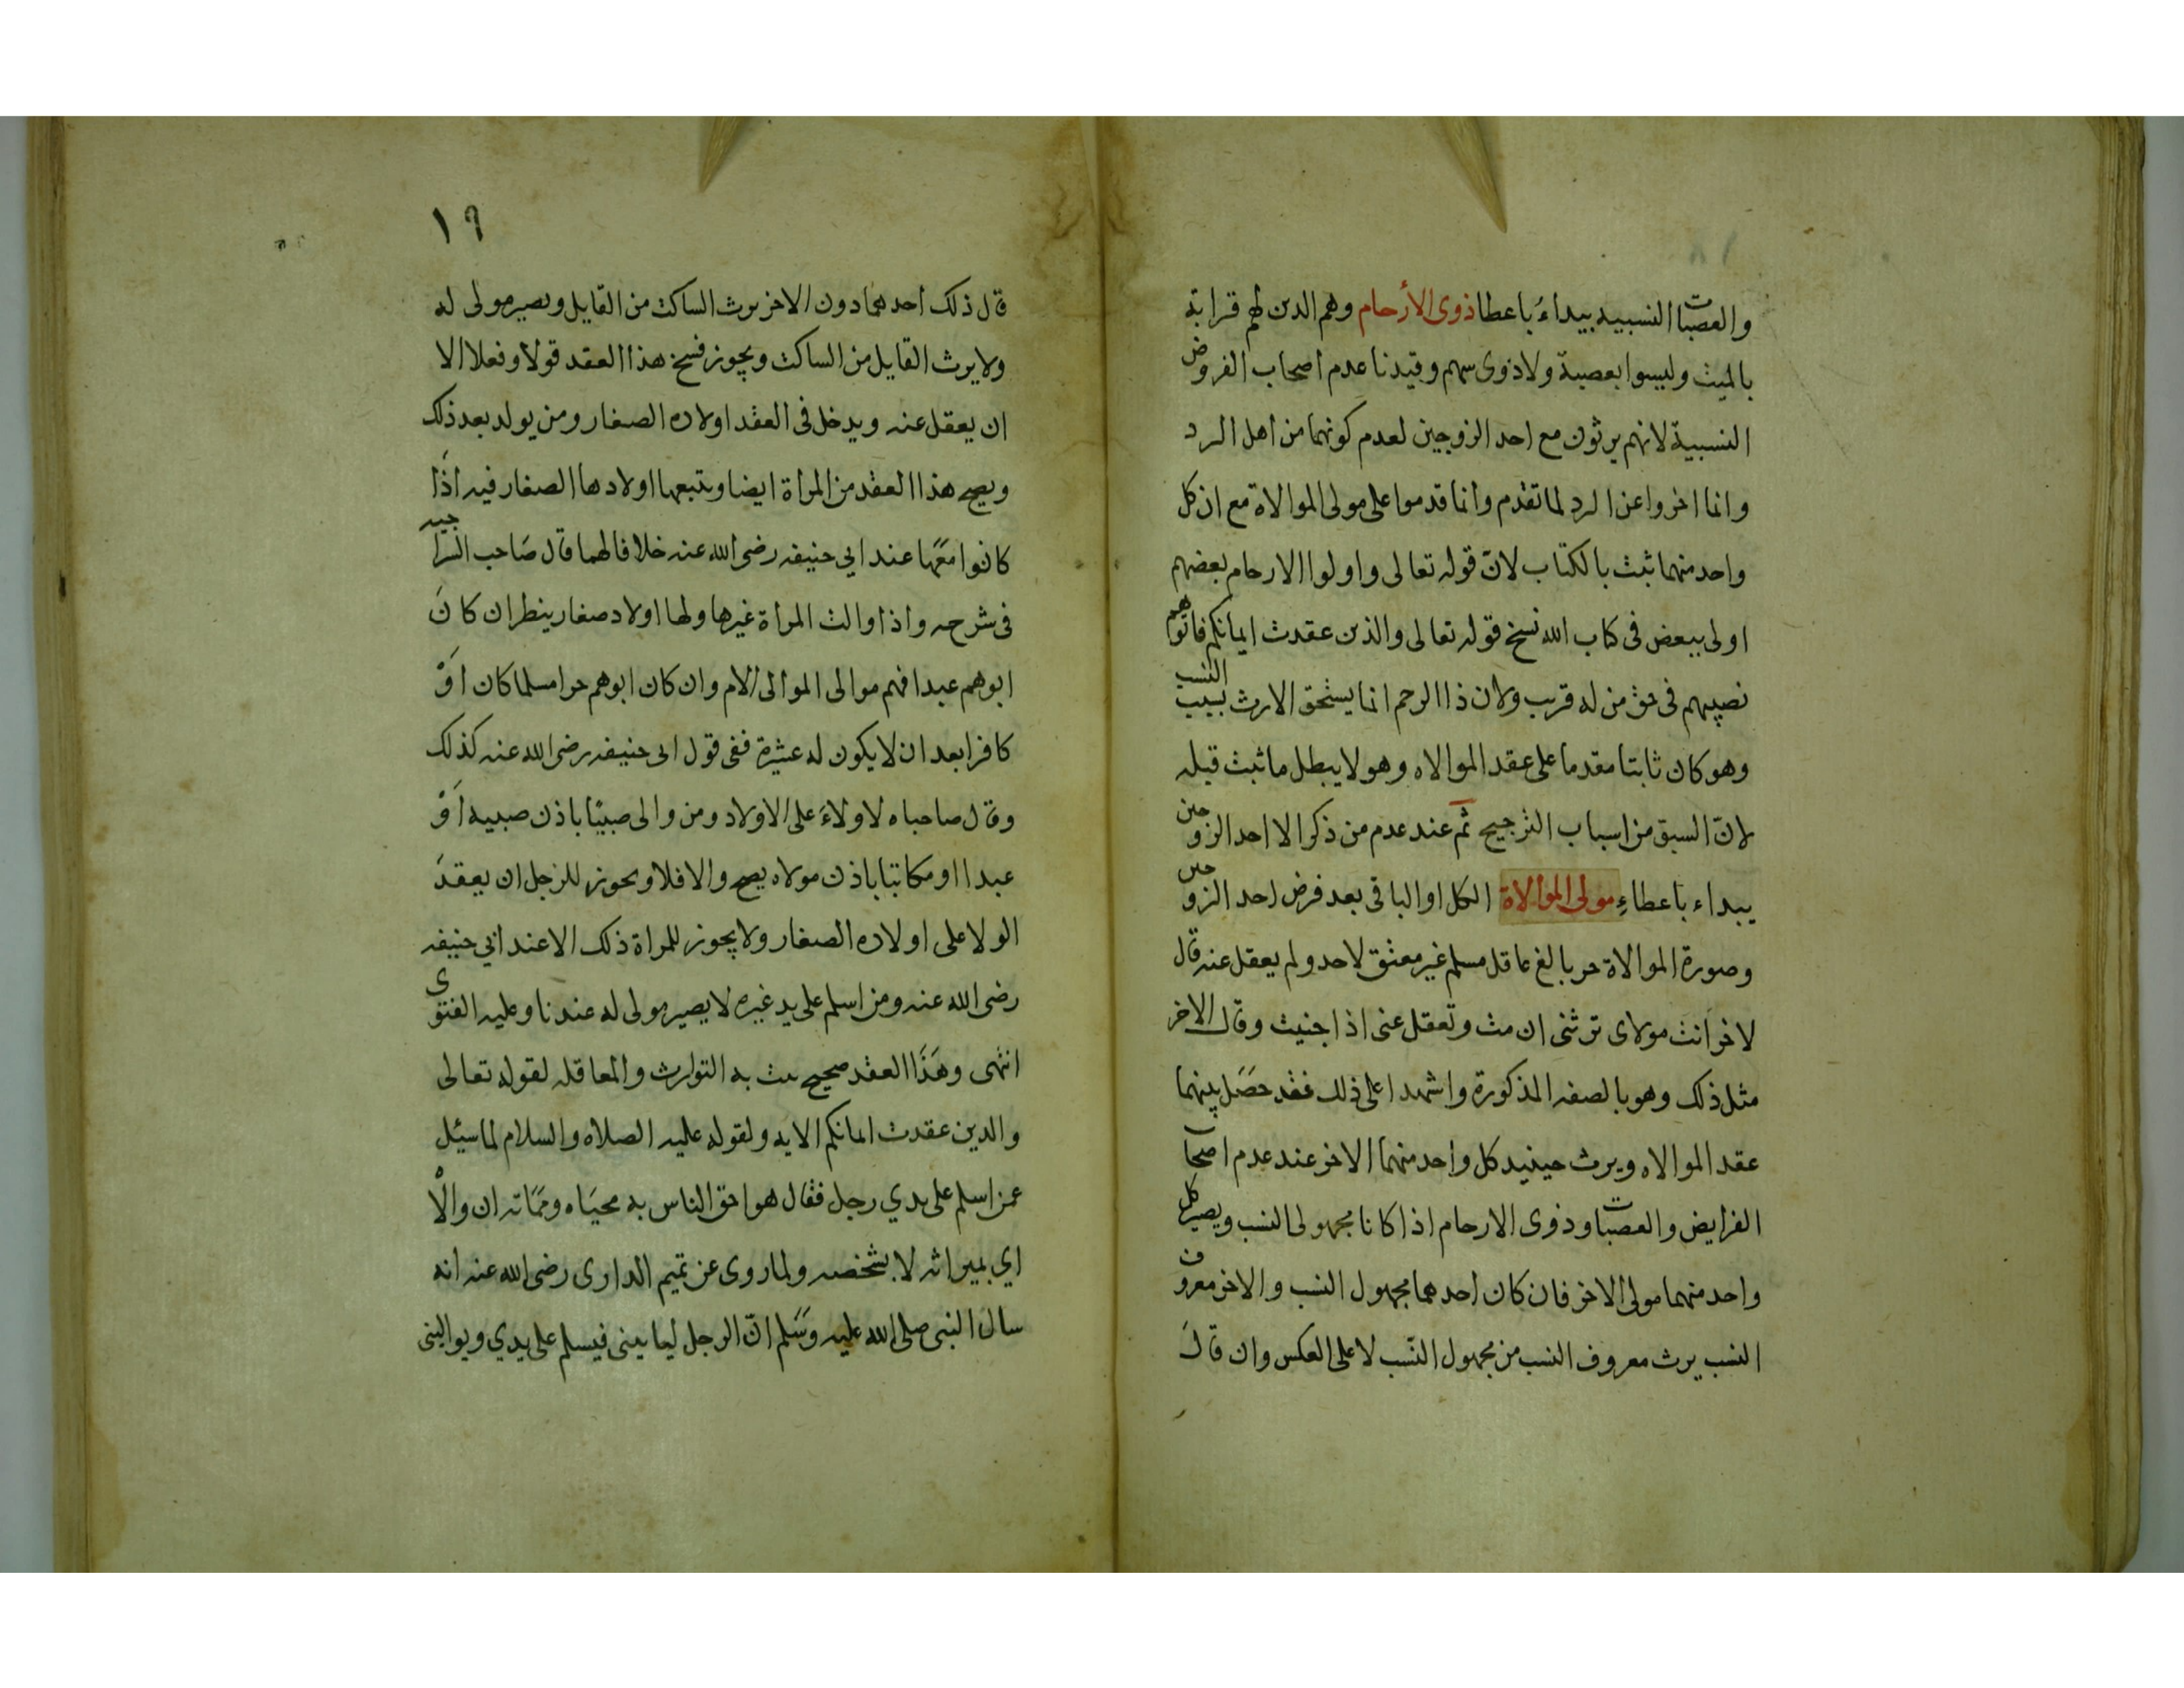 والعصبات النسبيه يبداء باعطا ذوى الأرحام وهم الدين لهم قرابة
بالميت وليسوا بعصبة ولا ذوى سهم وقيدنا عدم اصحاب الفروض
النسبية لانهم يرثون مع احد الزوجين لعدم كونهما من اهل الرد
وانما اخروا عن الرد لما تقدم وانما قدموا على مولى الموالاة مع ان كل
واحد منهما ثبث بالكتاب لانّ قوله تعالى واولوا الارحام بعضهم
اولى ببعض فى كتاب الله نسخ قوله تعالى والذين عقدت ايمانكم فاتوهم
نصيبهم فى حق من له قريب ولان ذا الرحم انما يستحق الارث بسبب النسب
وهو كان ثابتا مقدما على عقد الموالاه وهو لا يبطل ما ثبت قبله
لانّ السبق من اسباب الترجيح ثم عند عدم من ذكر الا احد الزوجين
يبداء باعطاءِ مولى الموالاة الكل او الباقى بعد فرض احد الزوجين
وصورة الموالاة حر بالغ عاقل مسلم غير معتق لاحد ولم يعقل عنه قال
لاخر انت مولاى ترثنى ان مت وتعقل عنى اذا جنيت وقال الاخر
مثل ذلك وهو بالصفه المذكورة واشهدا على ذلك فقد حَصَل بينهما
عقد الموالاه ويرث حينيد كل واحد منهما الاخر عند عدم اصحاب
الفرايض والعصبات وذوى الارحام اذا كانا مجهولى النسب ويصير كل
واحد منهما مولى الاخر فان كان احدهما مجهول النسب والاخر معروف
النسب يرث معروف النسب من مجهول النّسب لا على العكس وان قالَ
١٩
قال ذلك احدهما دون الاخر يرث الساكت من القايل ويصير مولى له
ولا يرث القايل من الساكت ويجوز فسخ هذا العقد قولا وفعلا الا
ان يعقل عنه ويدخل فى العقد اولاده الصغار ومن يولد بعد ذلك
ويصح هذا العقد من المراة ايضا ويتبعها اولادها الصغار فيه اذَا
كانوا معَها عند ابي حنيفه رضى الله عنه خلافا لهما قال صَاحب السراجيه
فى شرحه واذا والت المراة غيرها ولها اولاد صغار ينظر ان كانَ
ابوهم عبدا فهم موالى الموالى الام وان كان ابوهم حرا مسلما كان اَوْ
كافرا بعد ان لا يكون له عشيرة ففى قول ابى حنيفه رضى الله عنه كذلك
وقال صاحباه لا ولاءَ على الاولاد ومن والى صبيًا باذن صبيه اَوْ
عبدا او مكاتبا باذن مولاه يصح والا فلا ويجوز للرجل ان يعقدَ
الولا على اولاده الصغار ولا يجوز للمراة ذلك الا عند ابي حنيفه
رضى الله عنه ومن اسلم على يد غيره لا يصير مولى له عندنا وعليه الفتوى
انتهى وهَذَا العقد صحيح يثبث به التوارث والمعاقله لقوله تعالى
والدين عقدت ايمانكم الايه ولقوله عليه الصلاه والسلام لما سيئل
عمن اسلم على يدي رجل فقال هو احق الناس به محيَاه ومَمَاته ان والاْ
اي بميراثه لا بشخصه ولما روى عن تميم الدارى رضى الله عنه انه
سال النبى صلى الله عليه وسَلم انّ الرجل ليا يينى فيسلم على يدي ويوالينى